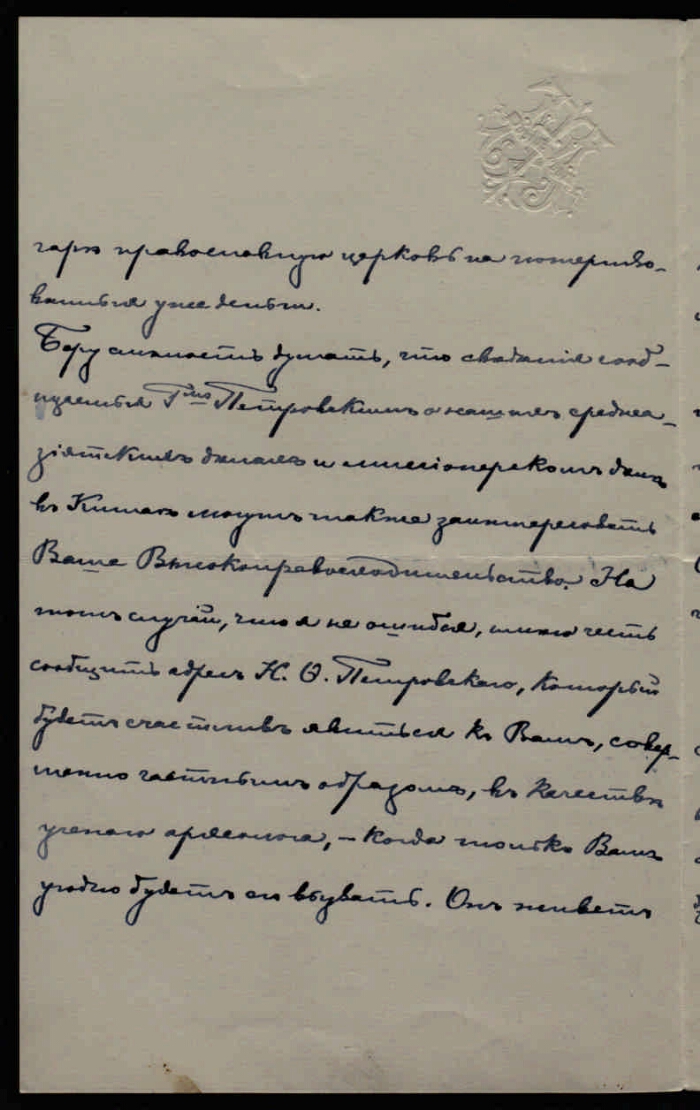 гарѣ православную церковь на пожертво-
ванныя уже деньги.
Беру смѣлость думать, что свѣдѣнія сооб-
щаемыя Гмъ Петровскимъ о нашихъ среднеа-
зіятскихъ дѣлахъ и миссіонерскомъ дѣлѣ
въ Китаѣ могутъ также заинтересовать
Ваше Высокопревосходительство. На
тотъ случай, что я не ошибся, имѣю честь
сообщить адресъ Н. Ѳ. Петровскаго, который
будетъ счастливъ явиться къ Вамъ, совер-
шенно частнымъ образомъ, въ качествѣ
ученаго археолога, – когда только Вамъ
угодно будетъ его вызвать. Онъ живетъ